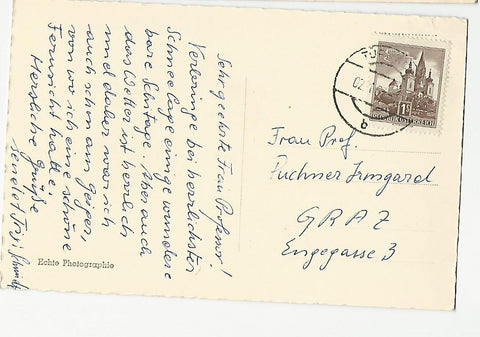 Sehr geehrte Frau Professor!
Verbringe bei herrlichster
Schneelage einige wunder-
bare Schitage. Aber auch
das Wetter ist herrlich
und daher war ich
auch schon am Geiger,
von wo ich eine schöne
Fernsicht hatte.
Herzliche Grüße
sendet
Echte Photographie
02.
b
Frau Prof.
Puchner Irmgard
GRAZ
Engegasse 3